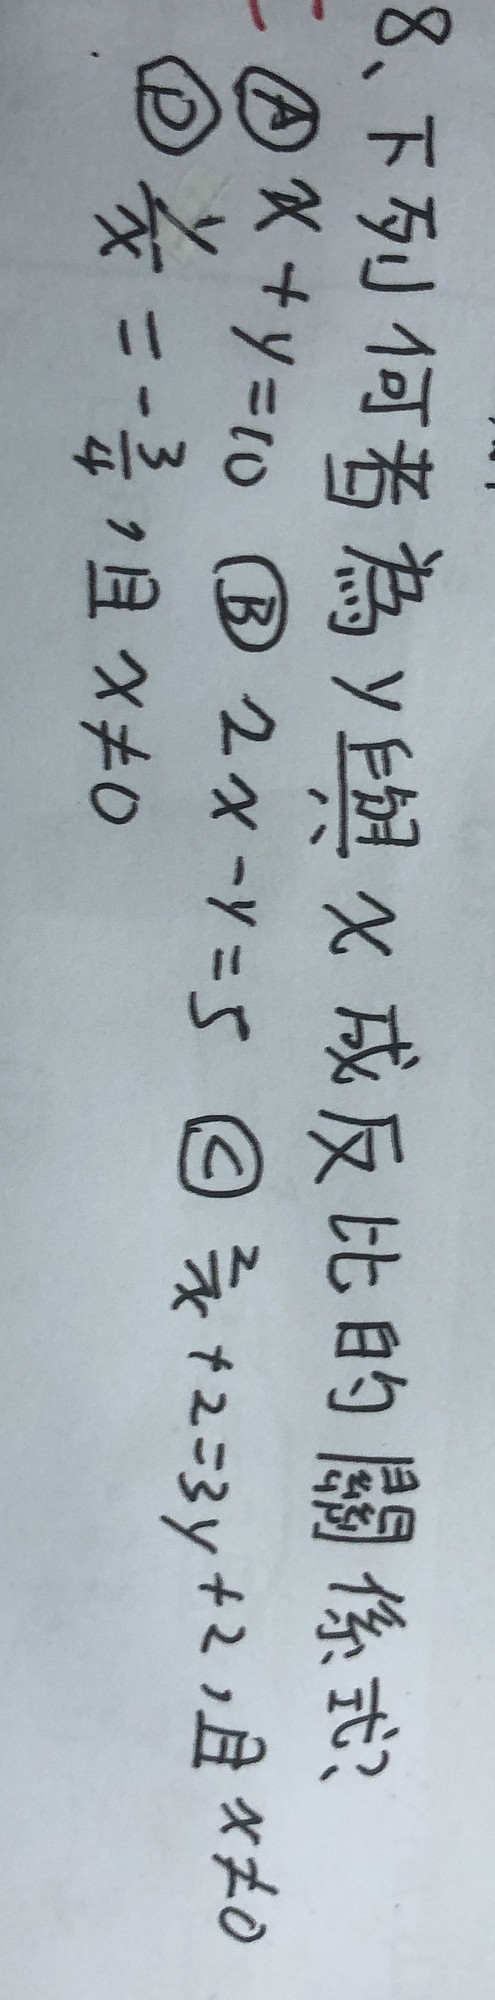 8、下列何者為y與x成反比的關係式?
Ⓐ x+y=10 Ⓑ 2x-y=5 Ⓒ 2/x+2=3y+2,且x≠0
Ⓓ y/x=-3/4,且x≠0